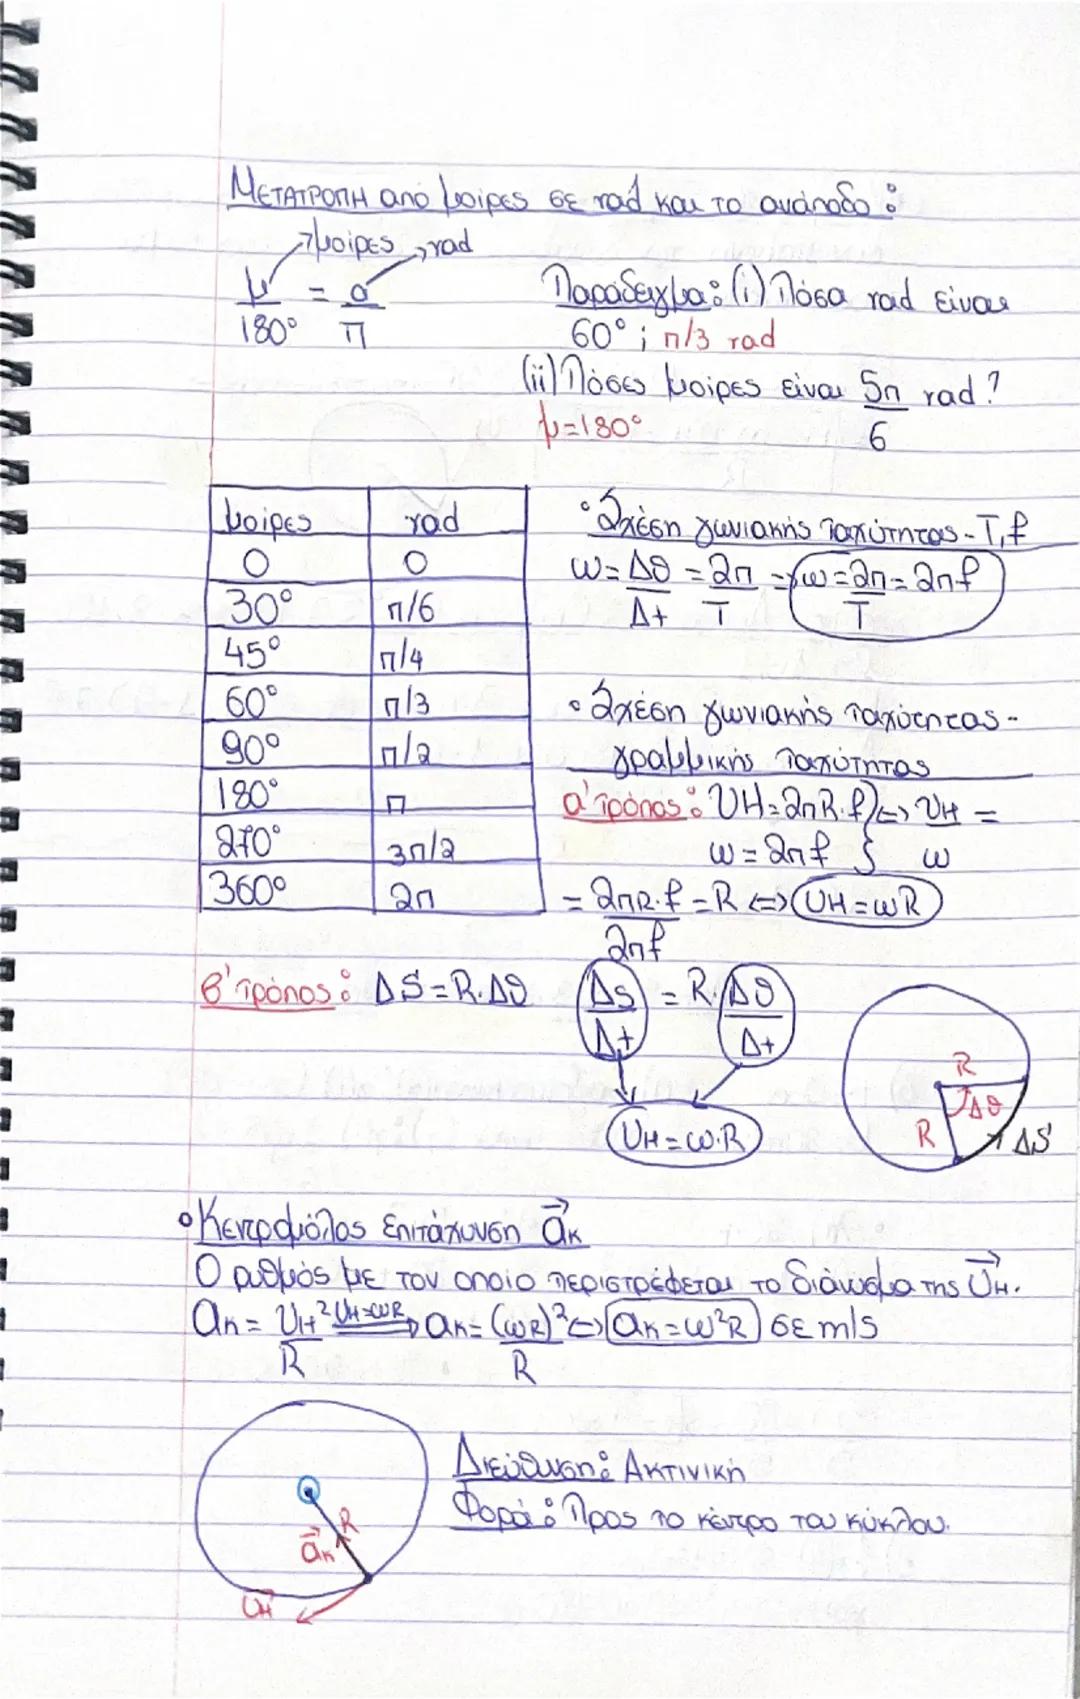 ΜΕΤΑΤΡΟΠΗ από μοίρες σε rad και το ανάποδο:
μοίρες rad
μ/180° = α/π
Παράδειγμα: (i) Πόσα rad είναι
60°; π/3 rad
(ii) Πόσες μοίρες είναι 5π/6 rad?
μ=180°
μοίρες rad
0 0
30° π/6
45° π/4
60° π/3
90° π/2
180° π
270° 3π/2
360° 2π
• Σχέση γωνιακής ταχύτητας - T, f
ω = Δθ/Δt = 2π/T → ω = 2π/T = 2πf
• Σχέση γωνιακής ταχύτητας -
γραμμικής ταχύτητας
α' τρόπος: UH = 2πR.f } <=> UH/ω =
ω = 2πf
= 2πR.f/2πf = R <=> UH = ωR
β' τρόπος: ΔS = R.Δθ ΔS/Δt = R.Δθ/Δt
UH = ω.R
R
R
Δθ
ΔS
• Κεντρομόλος επιτάχυνση a⃗κ
Ο ρυθμός με τον οποίο περιστρέφεται το διάνυσμα της U⃗H.
aκ = UH²/R UH=ωR => aκ = (ωR)²/R <=> aκ = ω²R σε m/s
Διεύθυνση: Ακτινική
Φορά: Προς το κέντρο του κύκλου.
R
a⃗κ
U⃗H